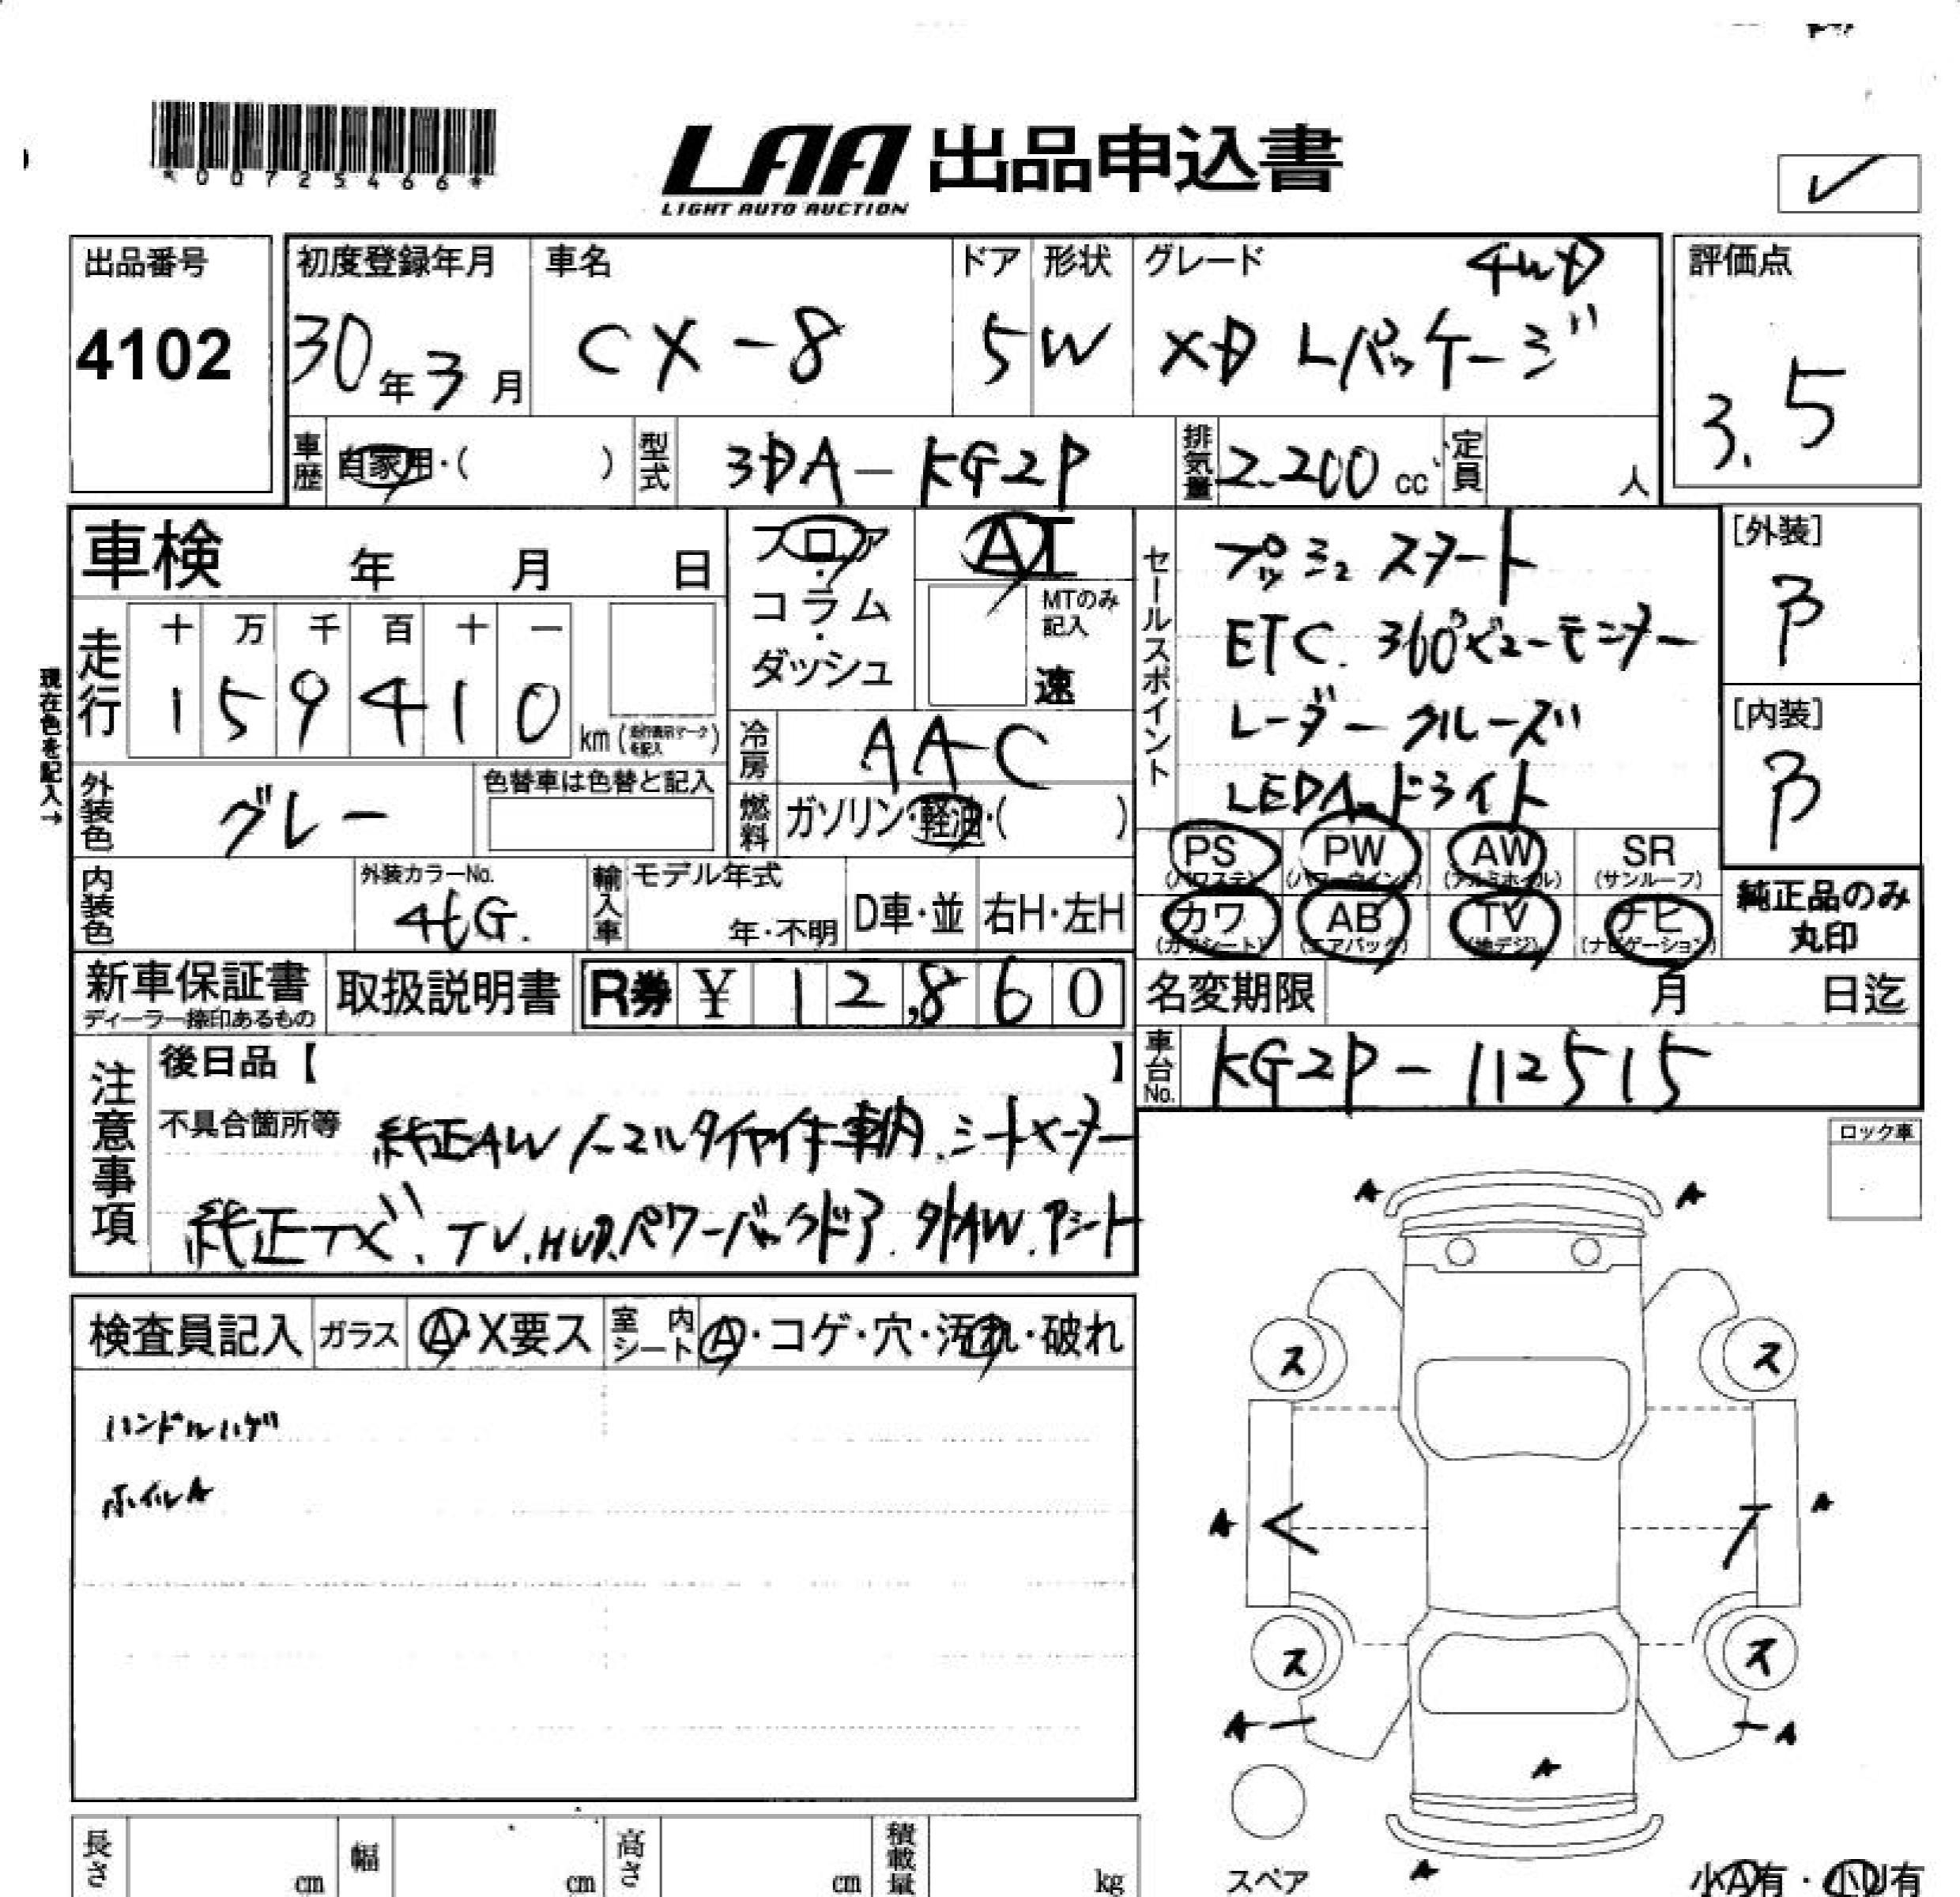 *00725466*
LAA 出品申込書
LIGHT AUTO AUCTION
出品番号
4102
初度登録年月
30年3月
車名
CX-8
ドア
5
形状
W
グレード 4WD
XD Lパッケージ
評価点
3.5
車歴 自家用・( )
型式 3DA-KG2P
排気量 2.200cc
定員 人
車検 年 月 日
フロア・コラム・ダッシュ
AT
MTのみ記入
速
現在色を記入→
走行
十 万 千 百 十 一
1 5 9 4 1 0 km
冷房 AAC
外装色 グレー
色替車は色替と記入
燃料 ガソリン・軽油・( )
内装色
外装カラーNo.
46G.
輸入車
モデル年式
年・不明
D車・並
右H・左H
セールスポイント
プッシュスタート
ETC. 360°ビューモニター
レーダークルーズ
LEDヘッドライト
[外装]
B
[内装]
B
PS (パワステ)
PW (パワーウインド)
AW (アルミホイル)
SR (サンルーフ)
カワ (カワシート)
AB (エアバッグ)
TV (地デジ)
ナビ (ナビゲーション)
純正品のみ丸印
新車保証書
ディーラー捺印あるもの
取扱説明書
R券 ¥ 12,860
名変期限 月 日迄
車台No. KG2P-112515
注意事項
後日品【 】
不具合箇所等 純正AWノーマルタイヤ付車内.シートヒーター
純正ナビ.TV.HUD.パワーバックドア.外AW.Pシート
検査員記入
ガラス A・X要ス
室内シート A・コゲ・穴・汚れ・破れ
ハンドルハゲ
ホイルA
ロック車
A A
ス ス
A A
ス ス
A A
A
A
スペア
小A有・小U有
長さ cm
幅 cm
高さ cm
積載量 kg